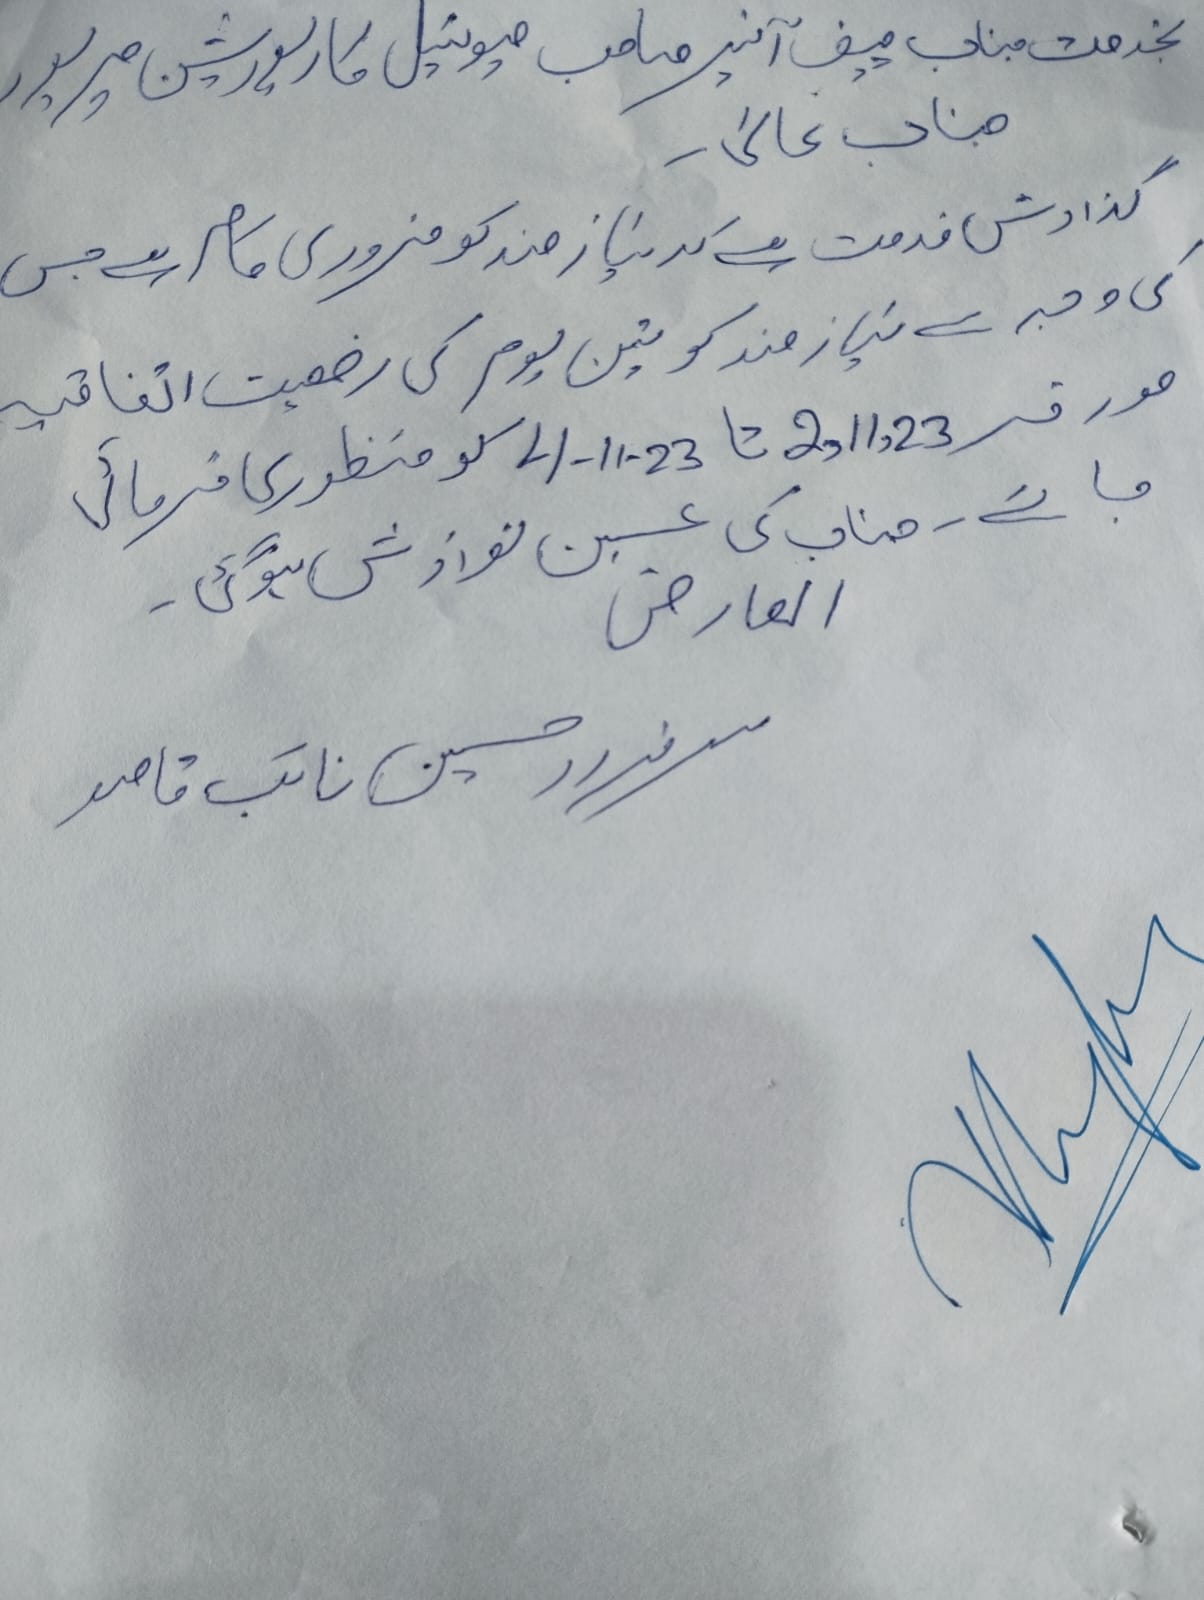 بخدمت جناب چیف آفیسر صاحب میونسپل کارپوریشن میرپور
جناب عالی۔
گذارش خدمت ہے کہ نیازمند کو ضروری کام ہے جس
کی وجہ سے نیازمند کو تین یوم کی رخصت اتفاقیہ
مورخہ 2.11.23 تا 4-11-23 کو منظوری فرمائی
جائے۔ جناب کی عین نوازش ہوگی۔
العارض
حسین نائب قاصد